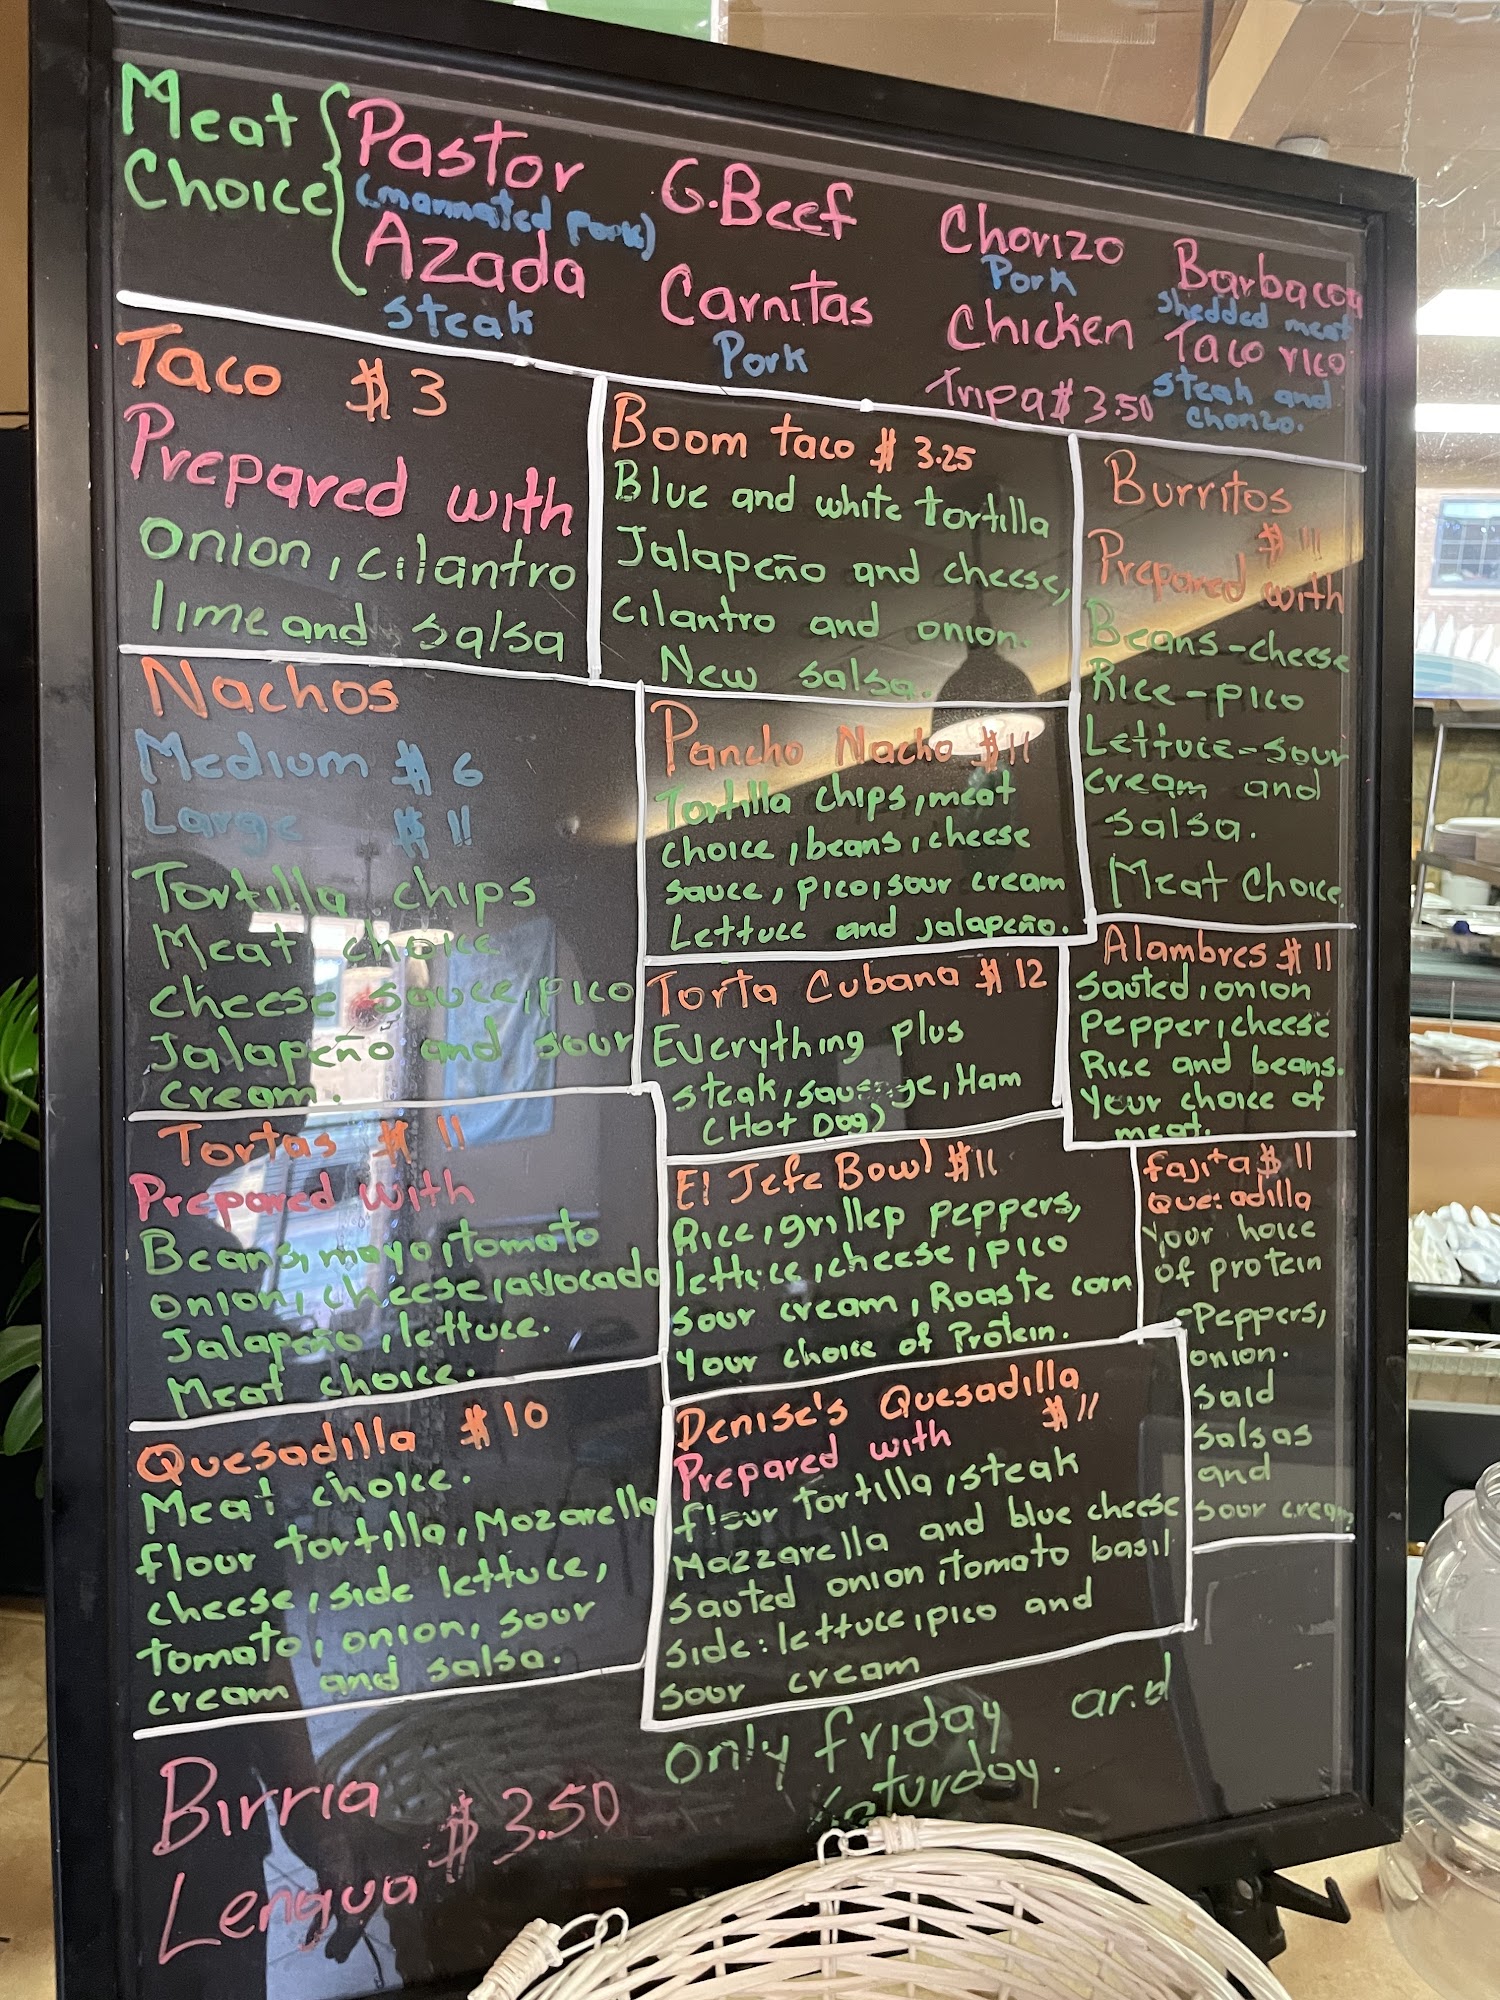 Meat
Choice
Pastor
(marinated pork)
Azada
steak
G.Beef
Carnitas
Pork
Chorizo
Pork
Chicken
Tripa $3.50
Barbacoa
shedded meat
Taco rico
steak and
chorizo.
Taco $3
Prepared with
onion, cilantro
lime and salsa
Boom taco $3.25
Blue and white tortilla
Jalapeño and cheese,
cilantro and onion.
New salsa.
Burritos
$11
Prepared with
Beans-cheese
Rice-pico
Lettuce-sour
cream and
salsa.
Meat Choice
Nachos
Medium $6
Large $11
Tortilla chips
Meat choice
cheese sauce, pico
Jalapeño and sour
cream.
Pancho Nacho $11
Tortilla chips, meat
choice, beans, cheese
sauce, pico, sour cream
Lettuce and jalapeño.
Torta Cubana $12
Everything plus
steak, sausage, Ham
(Hot Dog)
Alambres $11
Sauted, onion
Pepper, cheese
Rice and beans.
Your choice of
meat.
Tortas $11
Prepared with
Beans, mayo, tomato
onion, cheese, avocado
Jalapeño, lettuce.
Meat choice.
El Jefe Bowl $11
Rice, grilled peppers,
lettuce, cheese, pico
sour cream, Roaste corn
Your choice of Protein.
fajita $11
Quesadilla
Your hoice
of protein
-Peppers,
onion.
Said
Salsas
and
sour cream
Quesadilla $10
Meat choice.
flour tortilla, Mozarella
cheese, side lettuce,
tomato, onion, sour
cream and salsa.
Denise's Quesadilla
$11
Prepared with
flour tortilla, steak
Mazzarella and blue cheese
Sauted onion, tomato basil
side: lettuce, pico and
sour cream
Birria
$3.50
Lengua
only friday and
saturday.